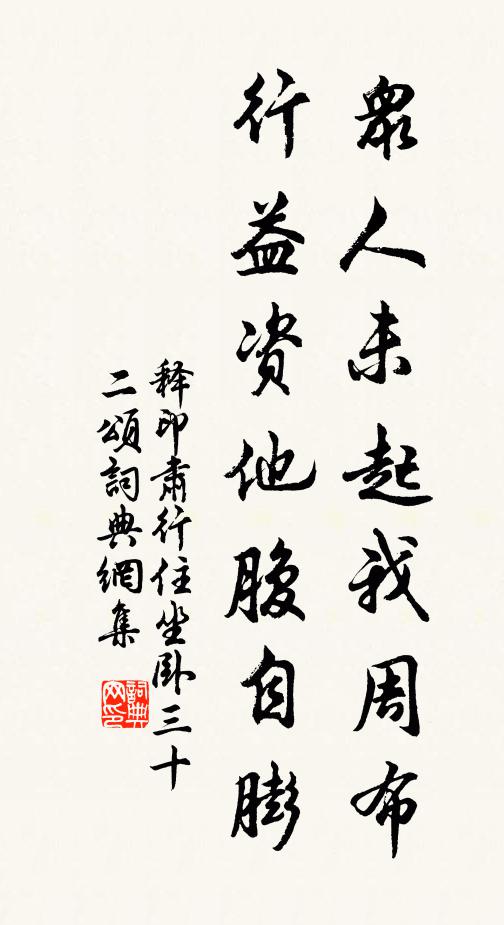 眾人未起我周布
行益资他腹自膨
释印肃行住坐卧三十
二頌詞典網集
詞典
网印